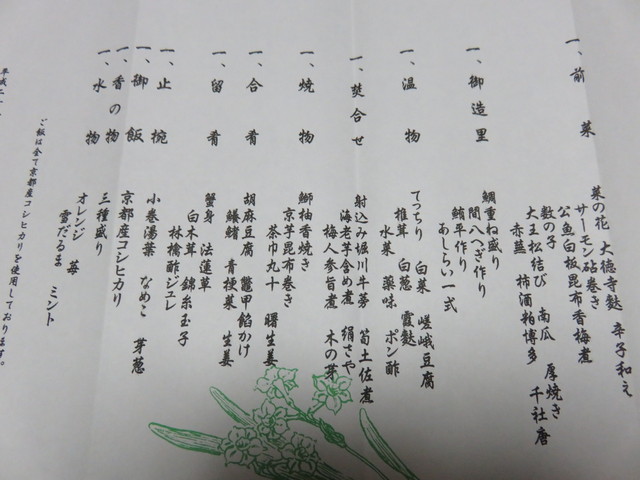 一、前菜
菜の花 大徳寺麩 辛子和え
サーモン砧巻き
公魚白板昆布香梅煮
数の子 南瓜 厚焼き
大王松結び 千社唐
赤蒟 柿酒粕博多
一、御造里
鯛重ね盛り
間八へぎ作り
鮪平作り
あしらい一式
一、温物
てっちり 白菜 嵯峨豆腐
椎茸 白葱 霞麩
水菜 薬味 ポン酢
一、焚合せ
射込み堀川牛蒡 筍土佐煮
海老芋含め煮 絹さや
梅人参旨煮 木の芽
一、焼物
鰤柚香焼き
京芋昆布巻き
茶巾丸十 曙生姜
一、合肴
胡麻豆腐 鼈甲餡かけ
鱶鰭 青梗菜 生姜
一、留肴
蟹身 法蓮草
白木茸 錦糸玉子
林檎酢ジュレ
一、止椀
小巻湯葉 なめこ 芽葱
一、御飯
京都産コシヒカリ
一、香の物
三種盛り
一、水物
オレンジ 苺
雪だるま ミント
ご飯は全て京都産コシヒカリを使用しております。
平成二